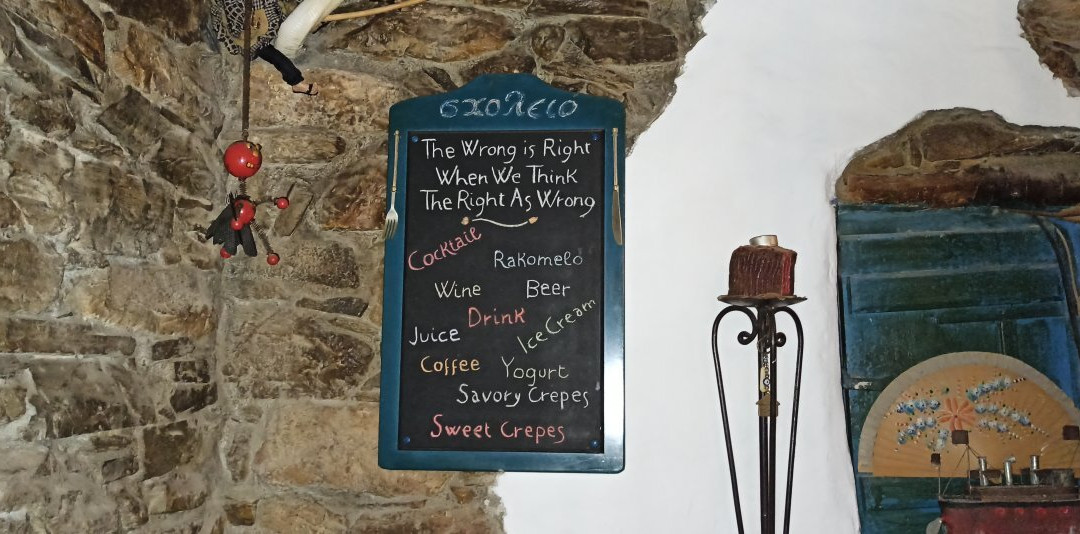 σχολειο
The Wrong is Right
When We Think
The Right As Wrong
Cocktail
Rakomelo
Wine Beer
Drink
Juice Ice Cream
Coffee Yogurt
Savory Crepes
Sweet Crepes